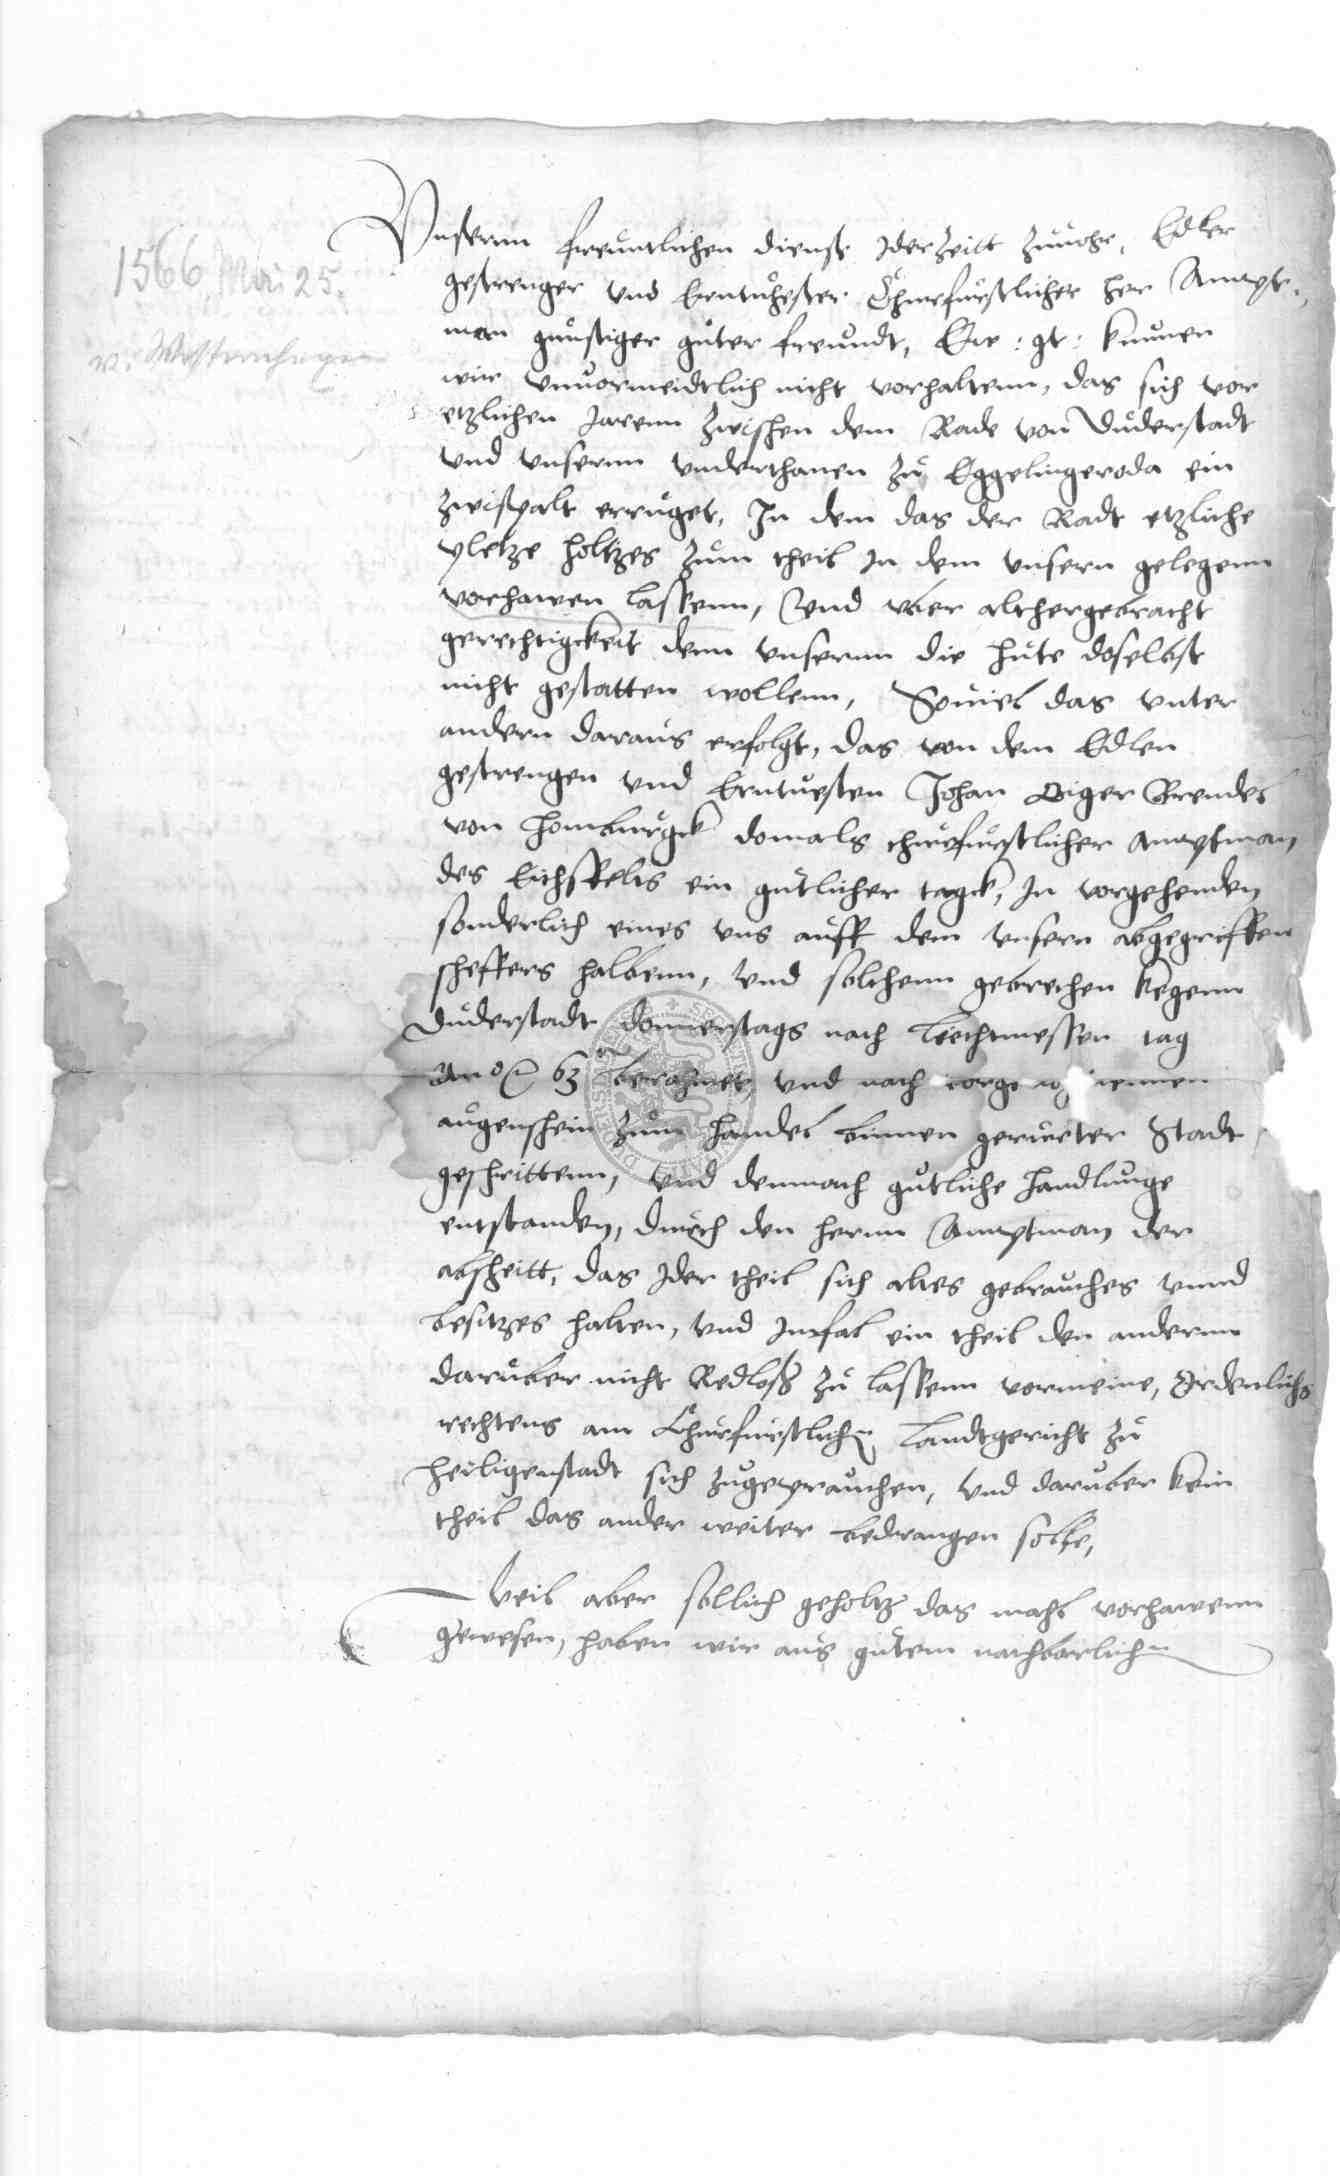 1566 Mai 25.
v. Westernhagen
Vnsernn freuntlichen dienst Iderzeitt zuuohr, Edler
gestrenger vnd Ernuhester Churfurstlicher her Ampt-
man gunstiger guter freundt, Ew: gt: konnen
wir vnuormeidtlich nicht vorhaltenn, das sich vor
etzlichen Jarenn zwischen dem Rade von Duderstadt
vnd vnsernn vnderthanen zu Eggelingeroda ein
zwispalt erruget, In dem das der Radt etzliche
pletze holtzes zum theil In dem vnsern gelegenn
vorhawen lassenn, Vnd vber althergebracht
gerechtigckeit denn vnsernn die hute doselbst
nicht gestatten wollenn, Souiel das vnter
andern daraus erfolgt, das von dem Edlen
gestrengen vnd Ernuesten Johan Oiger Brendel
von Homburgk domals churfurstlicher Amptman
des Eichsfelts ein gutlicher tagk, In vorgehenden
sonderlich eines vns auff dem vnsern abgegriffen
scheffers halbenn, vnd solchenn gebrechen kegenn
Duderstadt donnerstags nach Liechtmessen tag
Anno 63 berahmet, vnd nach
augenschein zum handel binnen gerurter Stadt
geschrittenn, vnd demnach gutliche handlunge
entstanden, durch den hernn Amptman der
abscheitt, das Ider theil sich altes gebrauches vnnd
besitzes halten, vnd Imfal ein theil den andernn
daruber nicht Redloß zu lassenn vormeine, Ordenlichs
rechtens am Churfurstlichen Landtgericht zu
Heiligenstadt sich zugeprauchen, vnd daruber kein
theil das ander weiter bedrangen solte,
Weil aber sollich geholtz das mahl vorhawenn
gewesen, haben wir aus gutem nachbarlichen